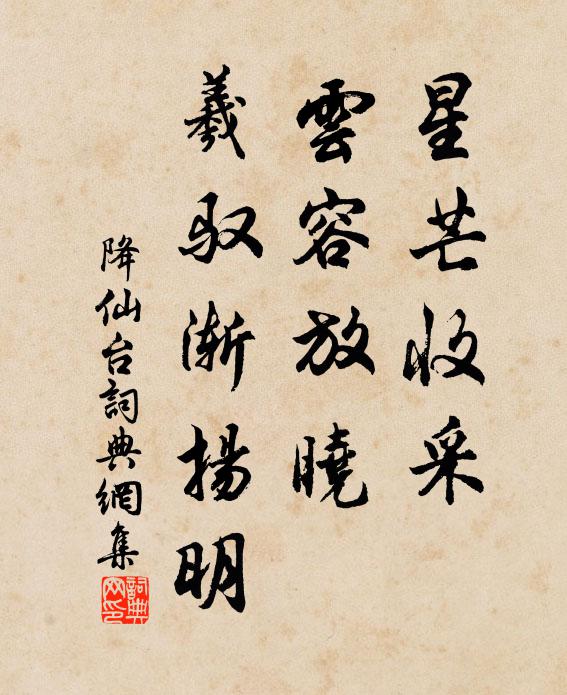 星芒收采
雲容放曉
羲驭渐揚明
降仙台詞典網集
詞典网印